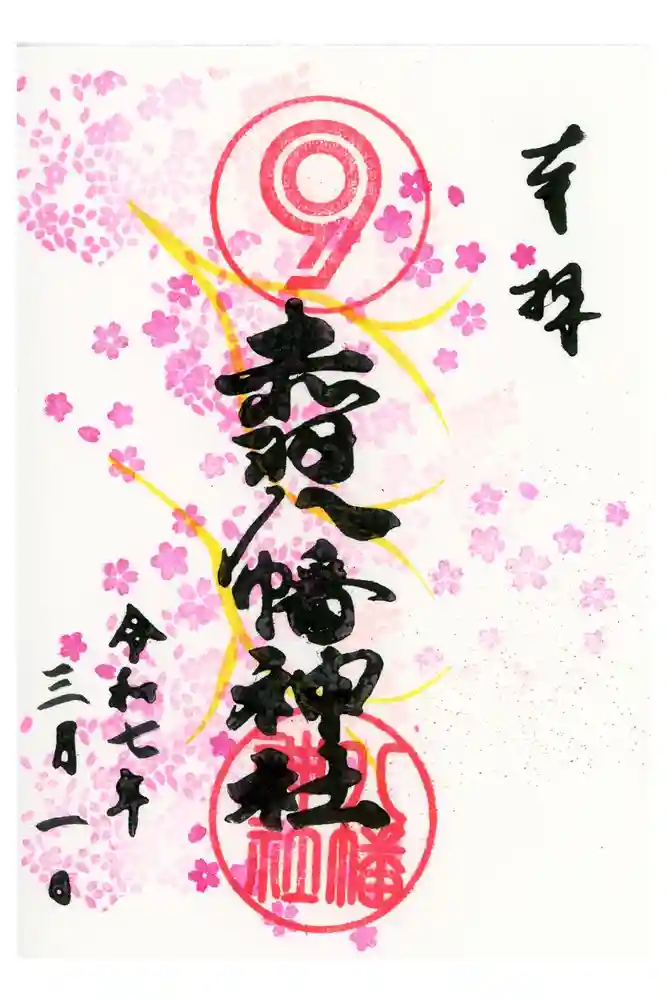 奉拝
赤羽八幡神社
八幡
神社
令和七年
三月一日